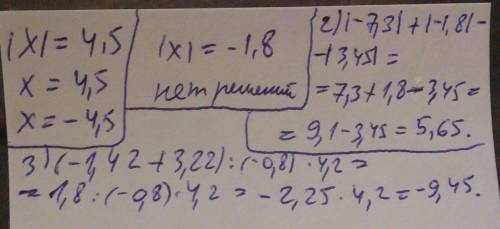 |x| = 4,5
x = 4,5
x = -4,5
|x| = -1,8
нет решений
2) |-7,3| + |-1,8| -
- |3,45| =
= 7,3 + 1,8 - 3,45 =
= 9,1 - 3,45 = 5,65.
3) (-1,42 + 3,22) : (-0,8) · 4,2 =
= 1,8 : (-0,8) · 4,2 = -2,25 · 4,2 = -9,45.